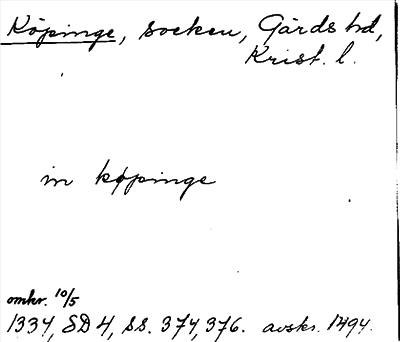 Köpinge, socken, Gärds hd,
Krist. l.
in køpinge
omkr. 10/5
1334, SD 4, ss. 374, 376. avskr. 1494.